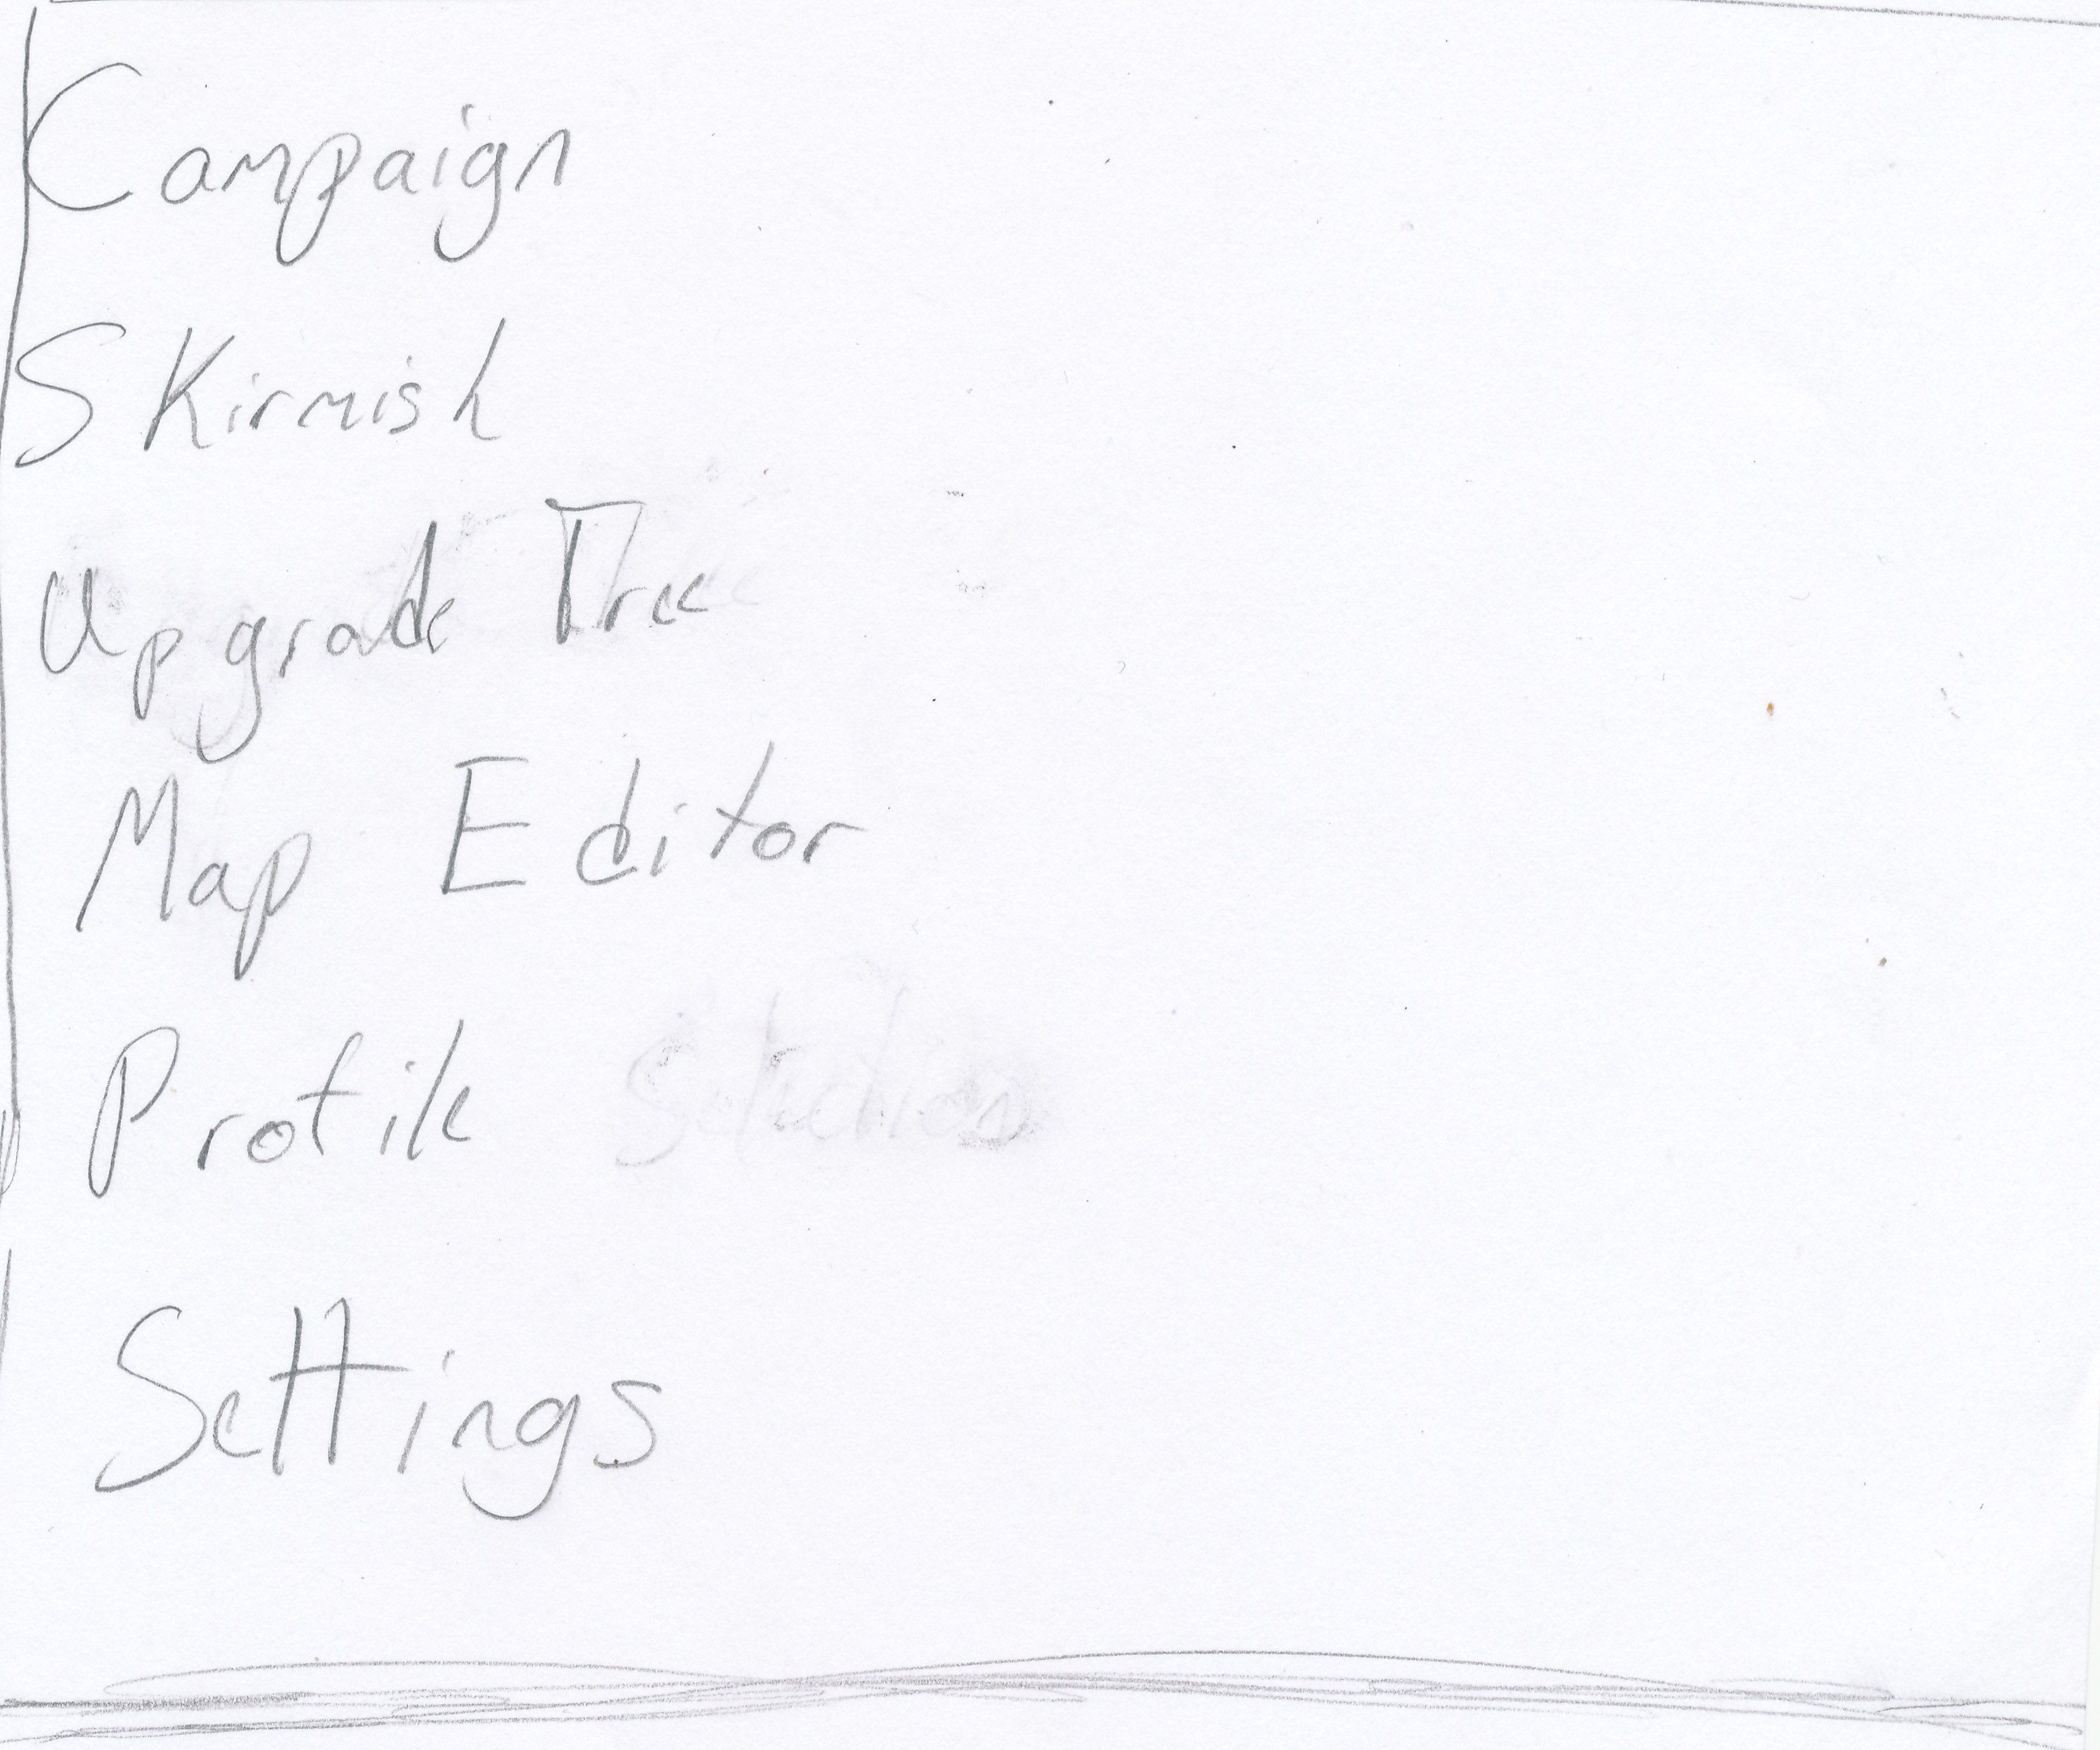 Campaign
Skirmish
Upgrade Tree
Map Editor
Profile Selection
Settings